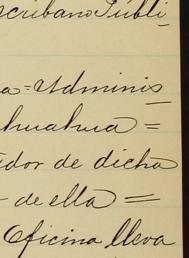 scribano Públi-
a = Adminis
huahua =
idor de dicha
- de ella =
Oficina lleva